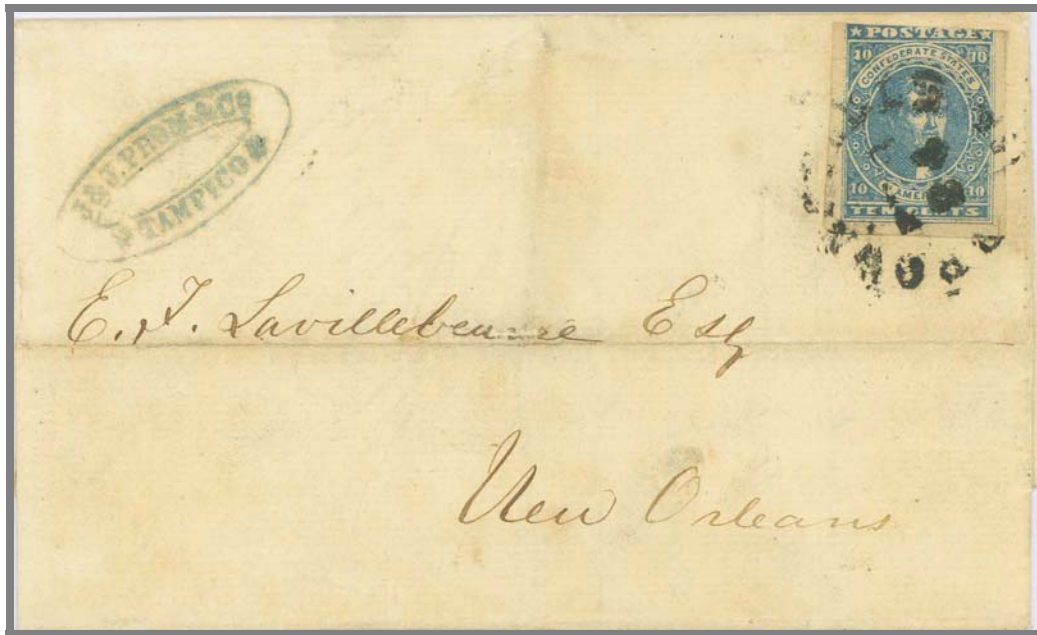 ★POSTAGE★
10 10
CONFEDERATE STATES
10 10
TEN CENTS
J. PROM & Co
TAMPICO
E. J. Lavillebeuvre Esq
New Orleans